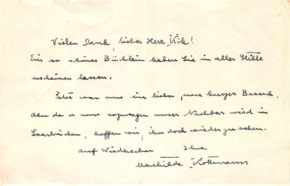 Vielen Dank, lieber Herr Kik!
Ein so schönes Büchlein haben Sie in aller Stille
erscheinen lassen.
Peter war uns ein lieber, nur kurzer Besuch.
Aber da er uns sozusagen unser Nachbar wird in
Saarbrücken, hoffen wir, ihn doch wieder zu sehen.
Auf Wiedersehen Ihre
Mathilde Kottmann